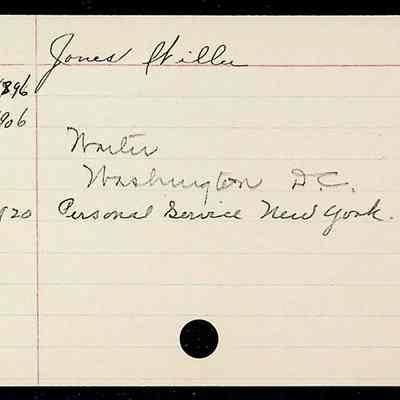 Jones Willie
896
906
Waiter
Washington D.C.
920 Personal Service New York.